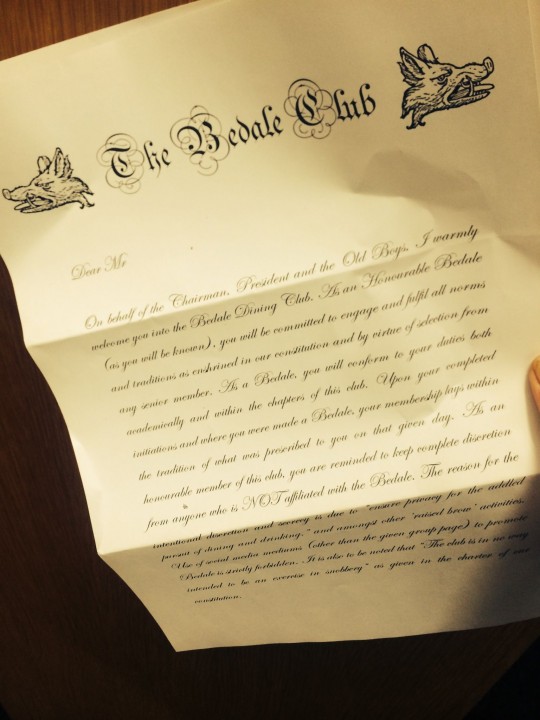 The Bedale Club
Dear Mr
On behalf of the Chairman, President and the Old Boys, I warmly
welcome you into the Bedale Dining Club. As an Honourable Bedale
(as you will be known), you will be committed to engage and fulfil all norms
and traditions as enshrined in our constitution and by virtue of selection from
any senior member. As a Bedale, you will conform to your duties both
academically and within the chapters of this club. Upon your completed
initiations and where you were made a Bedale, your membership lays within
the tradition of what was prescribed to you on that given day. As an
honourable member of this club, you are reminded to keep complete discretion
from anyone who is NOT affiliated with the Bedale. The reason for the
intentional discretion and secrecy is due to "ensure privacy for the addled
pursuit of dining and drinking," and amongst other 'raised brow' activities.
Use of social media mediums (other than the given group page) to promote
Bedale is strictly forbidden. It is also to be noted that "The club is in no way
intended to be an exercise in snobbery" as given in the charter of our
constitution.